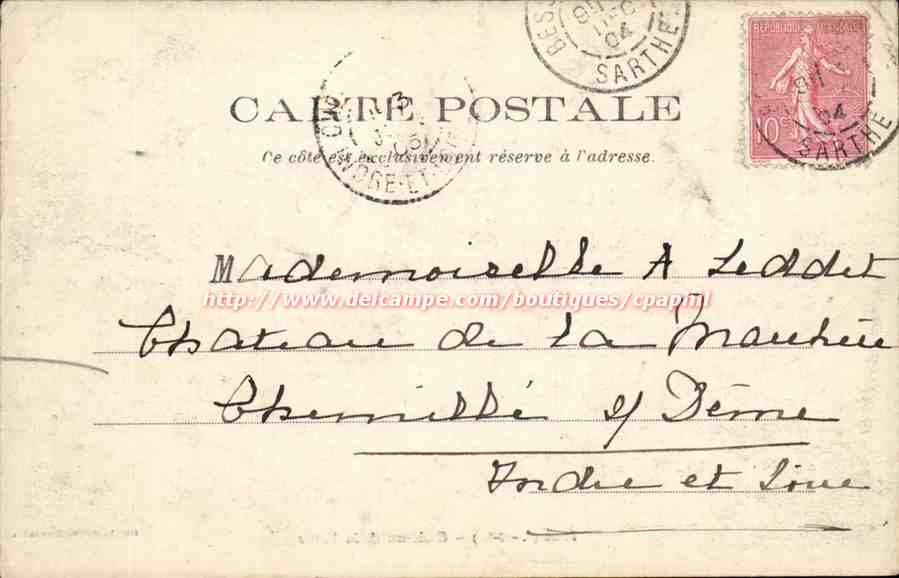 BES
DEC
04
SARTHE
RÉPUBLIQUE FRANÇAISE
10c
04
SARTHE
CARTE POSTALE
INDRE-ET-
Ce côté est exclusivement réservé à l'adresse.
Mademoiselle A Leddet
http://www.delcampe.com/boutiques/cpaphil
Chateau de la
Chemillé s/ Dême
Indre et Loire